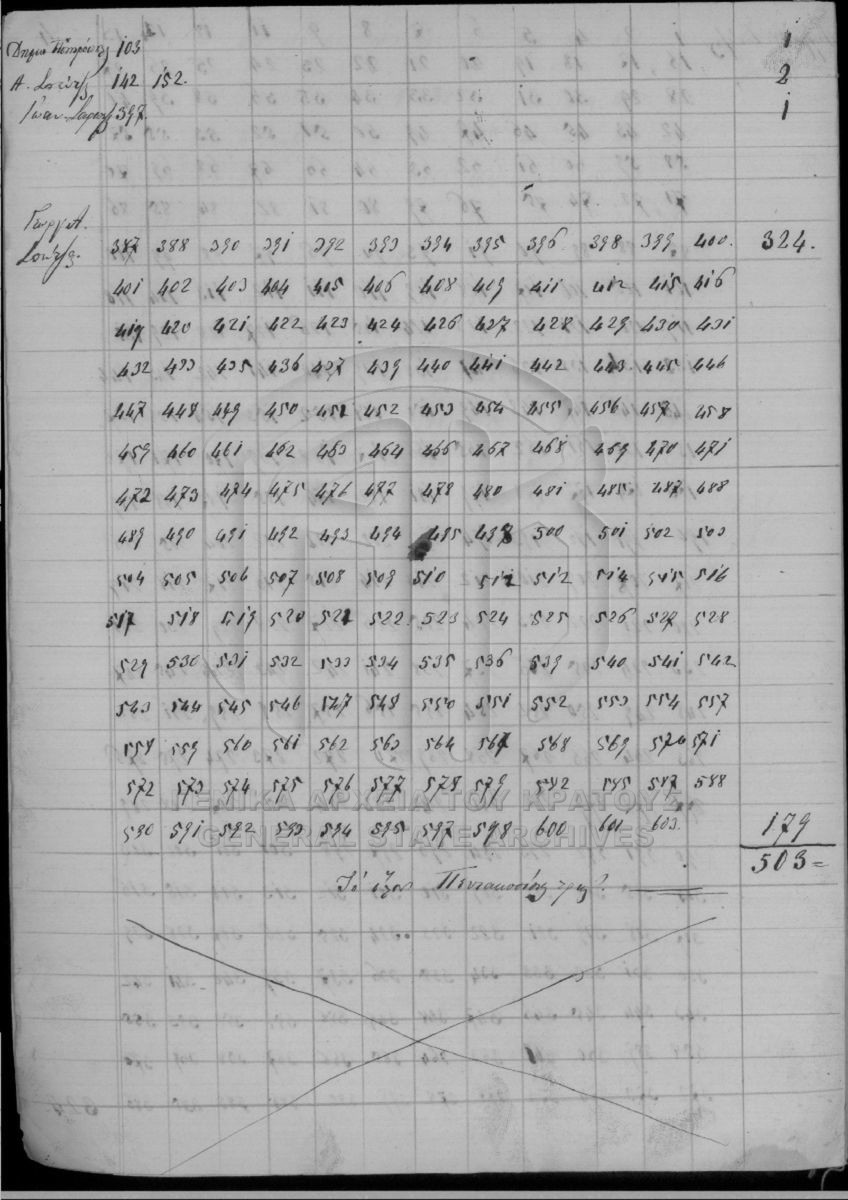 103 1
Α. Σούτζος 142 152. 2
Ἰωαν. 397. 1
Γεωργ. Α.
Σούτζος. 387 388 390 391 392 393 394 395 396 398 399 400. 324.
401 402 403 404 405 406 408 409 411 412 415 416
419 420 421 422 423 424 426 427 428 429 430 431
432 433 435 436 437 439 440 441 442 443 445 446
447 448 449 450 451 452 453 454 455 456 457 458
459 460 461 462 463 464 466 467 468 469 470 471
472 473 474 475 476 477 478 480 481 485 487 488
489 490 491 492 493 494 495 498 500 501 502 503
504 505 506 507 508 509 510 511 512 514 515 516
517 518 519 520 521 522 523 524 525 526 527 528
529 530 531 532 533 534 535 536 539 540 541 542
543 544 545 546 547 548 550 551 552 553 554 557
558 559 560 561 562 563 564 567 568 569 570 571
572 573 574 575 576 577 578 579 582 585 587 588
ΓΕΝΙΚΑ ΑΡΧΕΙΑ ΤΟΥ ΚΡΑΤΟΥΣ
590 591 592 593 594 595 597 598 600 601 603. 179
GENERAL STATE ARCHIVES
503=
Τὸ ὅλον Πεντακόσια τρία.